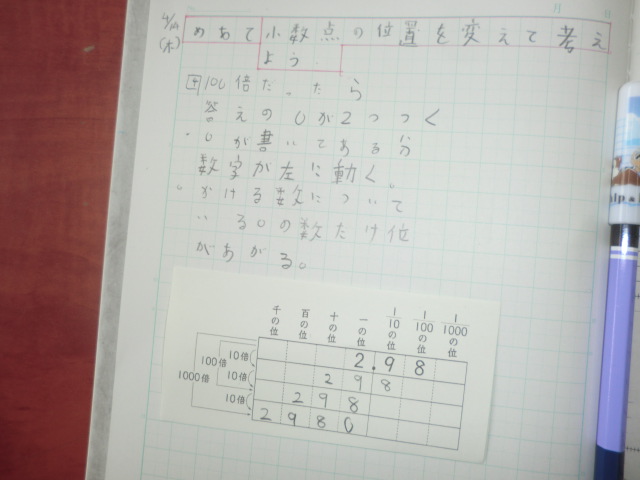 4/14
(木)
めあて 小数点の位置を変えて考え
よう
100倍だったら
答えの0が2つつく
・0が書いてある分
数字が左に動く。
。かける数について
いる0の数だけ位
があがる。
千の位 百の位 十の位 一の位 1/10の位 1/100の位 1/1000の位
2.98
298
298
2980
10倍
100倍
10倍
1000倍
10倍